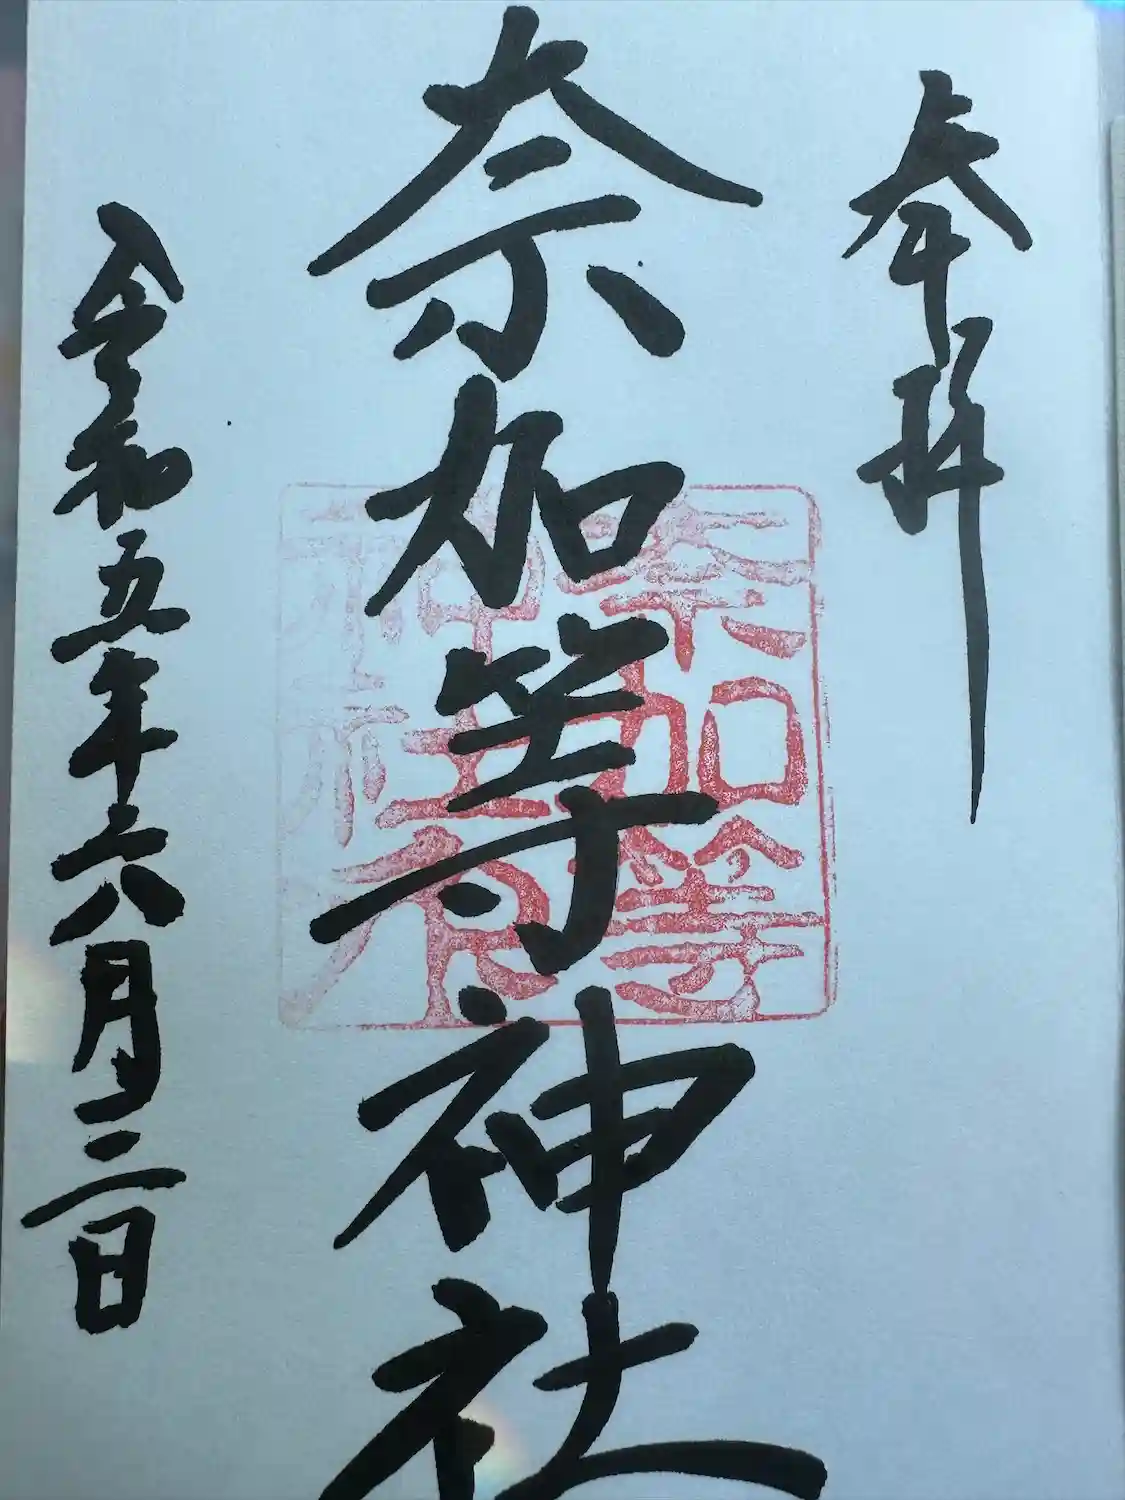 奉拝
奈加等神社
令和五年六月三日
奈加等
神社印